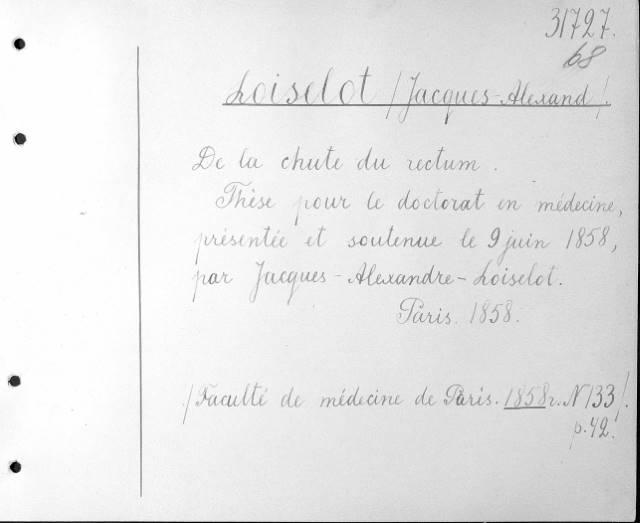 31727.
68
Loiselot /Jacques-Alexand/.
De la chute du rectum.
Thèse pour le doctorat en médecine,
présentée et soutenue le 9 juin 1858,
par Jacques-Alexandre-Loiselot.
Paris. 1858.
/Faculté de médecine de Paris. 1858г. N 133/.
p. 42.